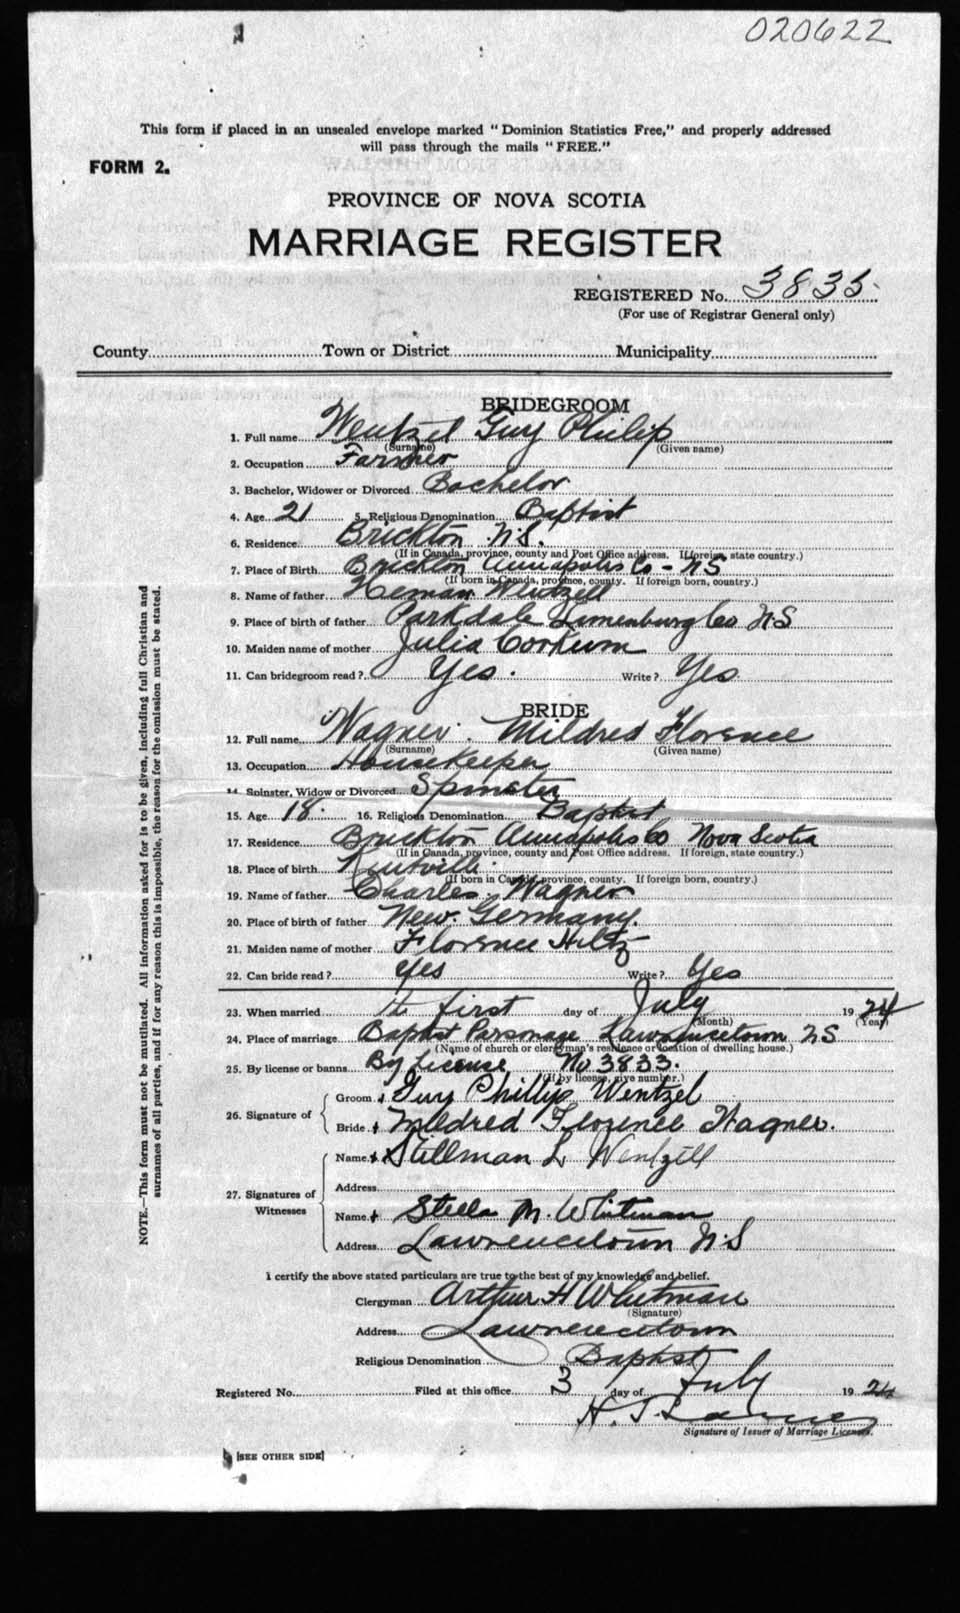 020622
This form if placed in an unsealed envelope marked "Dominion Statistics Free," and properly addressed
will pass through the mails "FREE."
FORM 2.
PROVINCE OF NOVA SCOTIA
MARRIAGE REGISTER
REGISTERED No. 3835
(For use of Registrar General only)
County Town or District Municipality
BRIDEGROOM
1. Full name Wentzel Guy Philip
(Surname) (Given name)
2. Occupation Farmer
3. Bachelor, Widower or Divorced Bachelor
4. Age 21 5. Religious Denomination Baptist
6. Residence Brickton N.S.
(If in Canada, province, county and Post Office address. If foreign, state country.)
7. Place of Birth Brickton Annapolis Co - NS
(If born in Canada, province, county. If foreign born, country.)
8. Name of father Heman Wentzell
9. Place of birth of father Parkdale Lunenburg Co NS
10. Maiden name of mother Julia Corkum
11. Can bridegroom read? Yes. Write? Yes
BRIDE
12. Full name Wagner. Mildred Florence
(Surname) (Given name)
13. Occupation Housekeeper
14. Spinster, Widow or Divorced Spinster
15. Age 18. 16. Religious Denomination Baptist
17. Residence Brickton Annapolis Co Nova Scotia
(If in Canada, province, county and Post Office address. If foreign, state country.)
18. Place of birth Kentville.
(If born in Canada, province, county. If foreign born, country.)
19. Name of father Charles. Wagner
20. Place of birth of father New. Germany.
21. Maiden name of mother Florence Hiltz
22. Can bride read? yes Write? Yes
23. When married first day of July 1924
(Month) (Year)
24. Place of marriage Baptist Parsonage Lawrencetown NS
(Name of church or clergyman's residence or location of dwelling house.)
25. By license or banns By License No 3833.
(If by license, give number.)
26. Signature of
Groom Guy Phillip Wentzel
Bride Mildred Florence Wagner.
27. Signatures of Witnesses
Name Stillman L Wentzell
Address
Name Stella M. Whitman
Address Lawrencetown N.S
I certify the above stated particulars are true to the best of my knowledge and belief.
Clergyman Arthur H Whitman
(Signature)
Address Lawrencetown
Religious Denomination Baptist
Registered No. Filed at this office 3 day of July 1924
Signature of Issuer of Marriage Licenses.
[SEE OTHER SIDE]
NOTE.—This form must not be mutilated. All information asked for is to be given, including full Christian and
surnames of all parties, and if for any reason this is impossible, the reason for the omission must be stated.